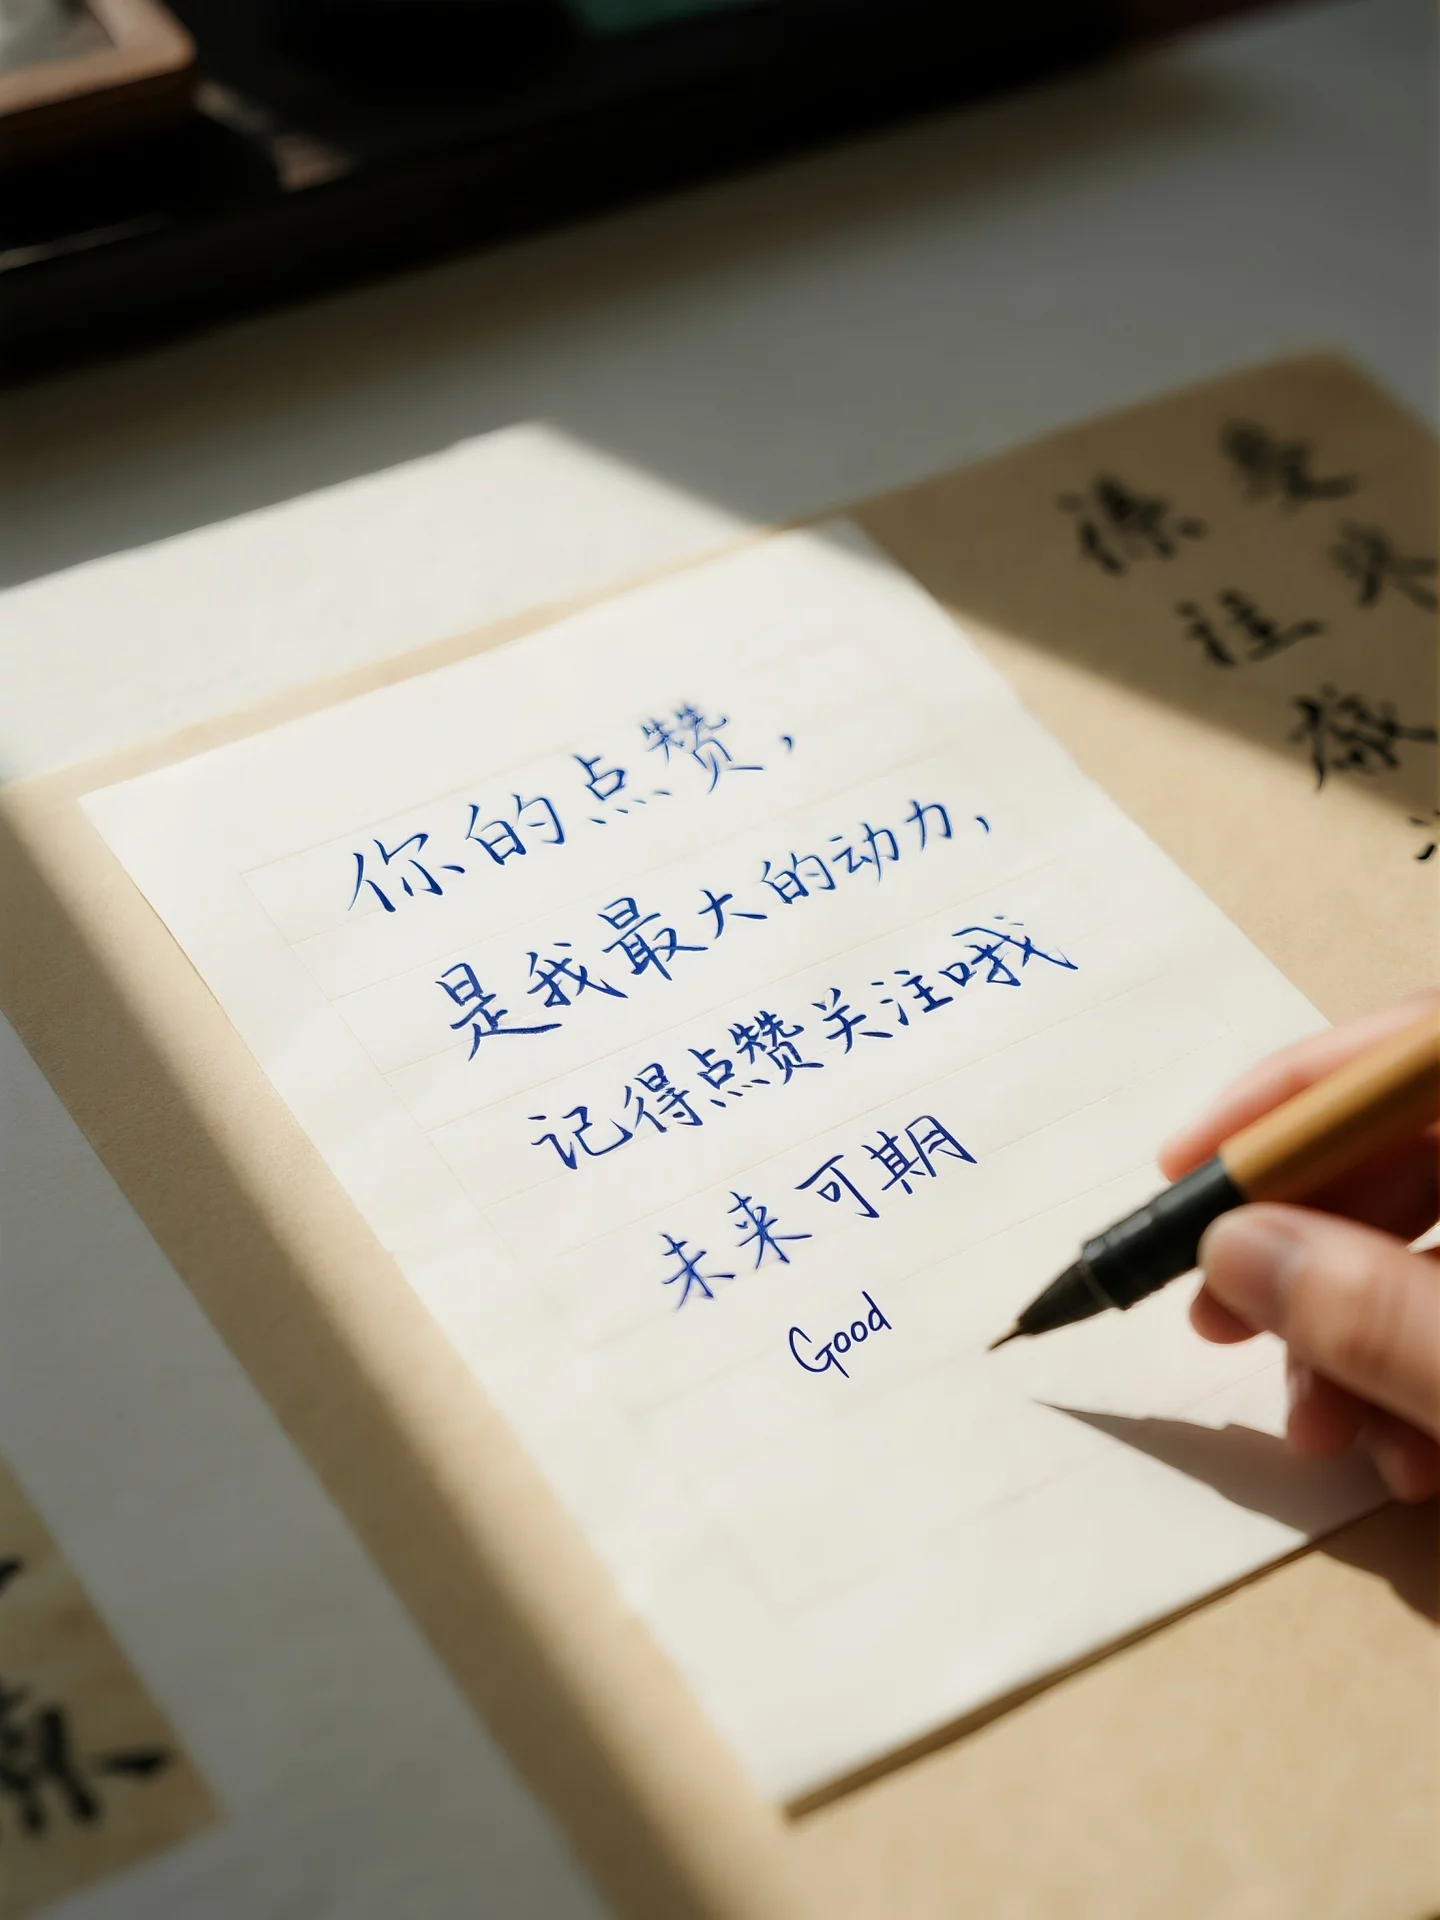 你的点赞，
是我最大的动力、
记得点赞关注哦
未来可期
Good